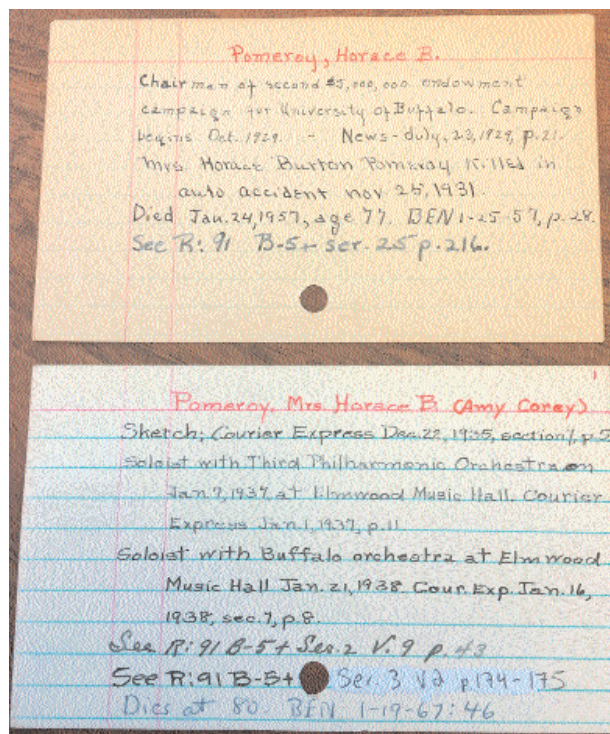 Pomeroy, Horace B.
Chairman of second $5,000,000 endowment
campaign for University of Buffalo. Campaign
begins Oct. 1929. - News - July, 23, 1929, p. 21.
Mrs. Horace Burton Pomeroy killed in
auto accident nov 25, 1931.
Died Jan. 24, 1957, age 77. BEN 1-25-57, p. 28.
See R: 91 B-5+ ser. 25 p. 216.
Pomeroy, Mrs. Horace B (Amy Corey)
Sketch; Courier Express Dec. 22, 1935, section 7, p. 5
Soloist with Third Philharmonic Orchestra on
Jan. 7, 1937 at Elmwood Music Hall. Courier
Express Jan. 1, 1937, p. 11
Soloist with Buffalo orchestra at Elmwood
Music Hall Jan. 21, 1938 Cour. Exp. Jan. 16,
1938, sec. 7, p. 8.
See R: 91 B-5+ Ser. 2 V. 9 p. 43
See R: 91 B-5+ Ser. 3 V2 p 174-175
Dies at 80. BEN 1-19-67: 46